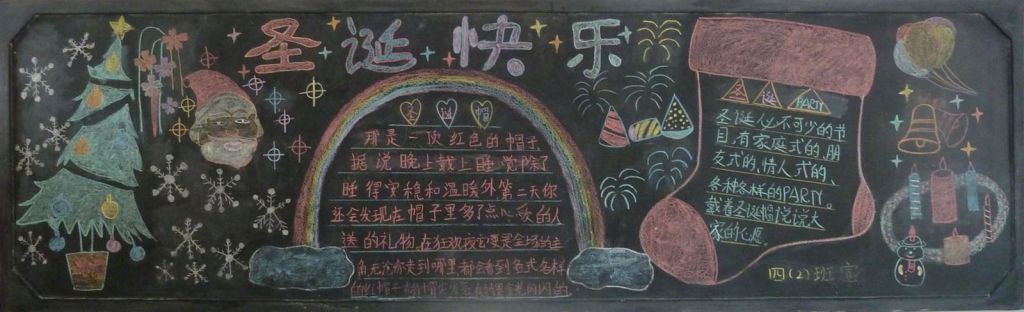 圣诞快乐
圣诞帽
那是一顶红色的帽子
据说晚上戴上睡觉除了
睡得安稳和温暖外第二天你
还会发现在帽子里多了点心爱的人
送的礼物,在狂欢夜它更是全场的主
角无论你走到哪里都会看到各式各样
的红帽子
圣诞PARTY
圣诞人必不可少的节
目,有家庭式的,朋
友式的,情人式的,
各种各样的PARTY。
戴着圣诞帽说说大
家的心愿。
四(2)班宣